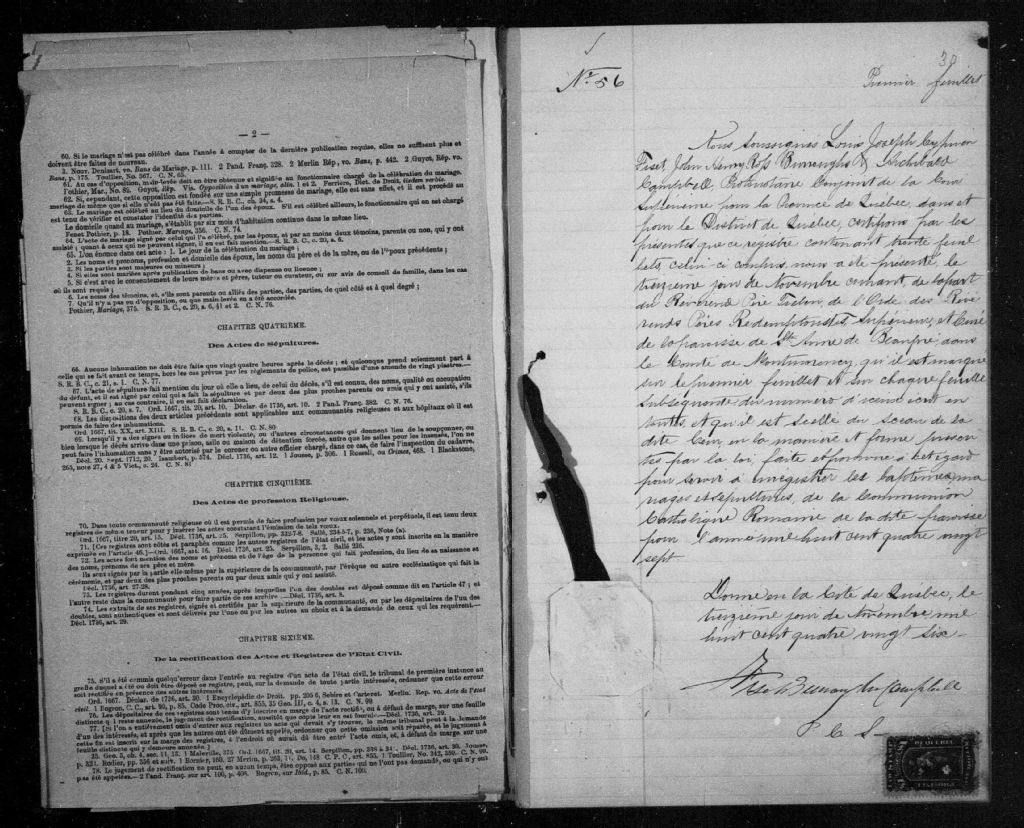 — 2 —
60. Si le mariage n'est pas célébré dans l'année à compter de la dernière publication requise, elles ne suffisent plus et
doivent être faites de nouveau.
3. Nouv. Denizart, vo. Bans de Mariage, p. 111. 2 Pand. Franç. 328. 2 Merlin Rép, vo. Bans, p. 442. 2 Guyot, Rép. vo.
Bans, p. 175. Toullier, No. 567. C. N. 65.
61. Au cas d'opposition, main-levée doit en être obtenue et signifiée au fonctionnaire chargé de la célébration du mariage.
Pothier, Mar., No. 82. Guyot, Rép. Vis. Opposition à un mariage, alin. 1 et 2. Ferrière, Dict. de Droit, eodem verbo.
62. Si, cependant, cette opposition est fondée sur une simple promesse de mariage, elle est sans effet, et il est procédé au
mariage de même que si elle n'eût pas été faite.—S. R. B. C., ch. 34, s. 4.
63. Le mariage est célébré au lieu du domicile de l'un des époux. S'il est célébré ailleurs, le fonctionnaire qui en est chargé
est tenu de vérifier et constater l'identité des parties.
Le domicile quant au mariage, s'établit par six mois d'habitation continue dans le même lieu.
Fenet Pothier, p. 18. Pothier, Mariage, 356. C. N. 74.
64. L'acte de mariage signé par celui qui l'a célébré, par les époux, et par au moins deux témoins, parents ou non, qui y ont
assisté ; quant à ceux qui ne peuvent signer, il en est fait mention.—S. R. B. C., c. 20, s. 6.
65. L'on énonce dans cet acte : 1. Le jour de la célébration du mariage ;
2. Les noms et prénoms, profession et domicile des époux, les noms du père et de la mère, ou de l'époux précédents ;
3. Si les parties sont majeures ou mineures ;
4. Si elles sont mariées après publication de bans ou avec dispense ou licence ;
5. Si c'est avec le consentement de leurs mère et père, tuteur ou curateur, ou sur avis de conseil de famille, dans les cas
où ils sont requis ;
6. Les noms des témoins, et, s'ils sont parents ou alliés des parties, de quel côté et à quel degré ;
7. Qu'il n'y a pas eu d'opposition, ou que main-levée en a été accordée.
Pothier, Mariage, 375. S. R. B. C., c. 20, s. 6, §1 et 2. C. N. 76.
CHAPITRE QUATRIÈME.
Des Actes de Sépultures.
66. Aucune inhumation ne doit être faite que vingt quatre heures après le décès ; et quiconque prend sciemment part à
celle qui se fait avant ce temps, hors les cas prévus par les règlements de police, est passible d'une amende de vingt piastres.—
S. R. B. C., c. 21, s. 1. C. N. 77.
67. L'acte de sépulture fait mention du jour où elle a lieu, de celui du décès, s'il est connu, des noms, qualité ou occupation
du défunt, et il est signé par celui qui a fait la sépulture et par deux des plus proches parents ou amis qui y ont assisté, s'ils
peuvent signer ; au cas contraire, il en est fait déclaration.
S. R. B. C., c. 20, s. 7. Ord. 1667, tit. 20, art. 10. Déclar. de 1736, art. 10. 2 Pand. Franç. 382. C. N. 78.
68. Les dispositions des deux articles précédents sont applicables aux communautés religieuses et aux hôpitaux où il est
permis de faire des inhumations.
Ord. 1667, tit. XX, art. XIII. S. R. B. C., c. 20, s. 11. C. N. 80
69. Lorsqu'il y a des signes ou indices de mort violente, ou d'autres circonstances qui donnent lieu de la soupçonner, ou
bien lorsque le décès arrive dans une prison, asile ou maison de détention forcée, autre que les asiles pour les insensés, l'on ne
peut faire l'inhumation sans y être autorisé par le coroner ou autre officier chargé, dans ce cas, de faire l'inspection du cadavre.
Décl. 20. Sept. 1712, 20 Isambert, p. 574. Décl. 1736, art. 12. 1 Jousse, p. 306. 1 Russell, on Crimes, 468. 1 Blackstone,
265, note 27, 4 & 5 Vict., c. 24. C. N. 81
CHAPITRE CINQUIÈME.
Des Actes de profession Religieuse.
70. Dans toute communauté religieuse où il est permis de faire profession par vœux solennels et perpétuels, il est tenu deux
registres de même teneur pour y insérer les actes constatant l'émission de tels vœux.
Ord. 1667, titre 20, art. 15. Décl. 1736, art. 25. Serpillon, pp. 332-7-8. Sallé, 234-5-7, p. 236, Note (a).
71. [Ces registres sont cotés et paraphés comme les autres registres de l'état civil, et les actes y sont inscrits en la manière
exprimée en l'article 46.]—Ord. 1667, art. 16. Décl. 1736, art. 25. Serpillon, 3, 2. Sallé 236.
72. Les actes font mention des noms et prénoms et de l'âge de la personne qui fait profession, du lieu de sa naissance et
des noms, prénoms de ses père et mère.
Ils sont signés par la partie elle-même par la supérieure de la communauté, par l'évêque ou autre ecclésiastique qui fait la
cérémonie, et par deux des plus proches parents ou par deux amis qui y ont assisté.
Décl. 1736, art. 27-28.
73. Les registres durent pendant cinq années, après lesquelles l'un des doubles est déposé comme dit en l'article 47 ; et
l'autre reste dans la communauté pour faire partie de ses archives.—Décl. 1736, art. 8.
74. Les extraits de ces registres, signés et certifiés par la supérieure de la communauté, ou par les dépositaires de l'un des
doubles, sont authentiques et sont délivrés par l'une ou par les autres au choix et à la demande de ceux qui les requèrent.—
Décl. 1736, art. 29.
CHAPITRE SIXIÈME.
De la rectification des Actes et Registres de l'Etat Civil.
75. S'il a été commis quelqu'erreur dans l'entrée au registre d'un acte de l'état civil, le tribunal de première instance au
greffe duquel a été ou doit être déposé ce registre, peut, sur la demande de toute partie intéressée, ordonner que cette erreur
soit rectifiée en présence des autres intéressés.
Ord. 1667. Déclar. de 1736, art. 30. 1 Encyclopédie de Droit. pp. 205 6, Sebire et Carteret. Merlin. Rep. vo. Acte de l'état
civil. 1 Rogron, C. C., art. 90, p. 85. Code Proc. civ., art. 855, 35 Geo. III, c. 4, s. 13. C. N. 99.
76. Les dépositaires de ces registres sont tenus d'y inscrire en marge de l'acte rectifié, ou à défaut de marge, sur une feuille
distincte qui y reste annexée, le jugement de rectification, aussitôt que copie leur en est fournie.—Décl. 1736, art. 29.
77. [Si l'on a entièrement omis d'entrer aux registres un acte qui devait s'y trouver, le même tribunal peut à la demande
d'un des intéressés, et après que les autres ont été dûment appelés, ordonner que cette omission soit réparée, et le jugement à
cette fin est inscrit sur la marge des registres, à l'endroit où aurait dû être entré l'acte omis, et, à défaut de marge, sur une
feuille distincte qui y demeure annexée.]
25. Geo. 3, ch. 4, sec. 11, 13. 1 Maleville, 375. Ord. 1667, tit. 20, art. 14. Serpillon, pp. 338 à 34. Décl. 1736, art. 30. Jousse,
p. 321. Rodier, pp. 356 et suiv. 1 Bornier, 160. 27 Merlin, p. 263, Do, 148 C. P. C., art. 855. 1 Toullier, No. 342, 350. C. N. 99.
78. Le jugement de rectification ne peut, en aucun temps, être opposé aux parties qui ne l'ont pas demandé, ou qui n'y ont
pas été appelées.—2 Pand. Franç. sur art. 100, p. 406. Rogron, sur Ibid., p. 85. C. N. 100.
30
Nº 56
Premier feuillet
Nous Soussignés Louis Joseph Cyprien
Fiset, John Henry Ross Burroughs & Archibald
Campbell Protonotaire Conjoint de la Cour
Supérieure pour la Province de Québec, dans et
pour le District de Québec, certifions par les
présentes que ce registre contenant trente feuil
lets, celui ci compris, nous a été présenté, le
treizième jour de Novembre courant, de la part
du Révérend Père Tielen, de l'Ordre des Révé
rends Pères Redemptoristes, Supérieur, et Curé
de la paroisse de Ste Anne de Beaupré, dans
le Comté de Montmorency, qu'il est marqué
sur le premier feuillet et sur chaque feuille
subséquente du numéro d'icelui écrit en
toutes, et qu'il est scellé du sceau de la
dite Cour, en la manière et forme prescri
tes par la loi, faite et pourvue à cet égard
pour servir à enregistrer les baptêmes, ma
riages et sépultures, de la Communion
Catholique Romaine de la dite paroisse
pour l'année mil huit cent quatre vingt
sept.
Donné en la Cité de Québec, le
treizième jour de Novembre, mil
huit cent quatre vingt six—
Fiset Burroughs Campbell
P C S